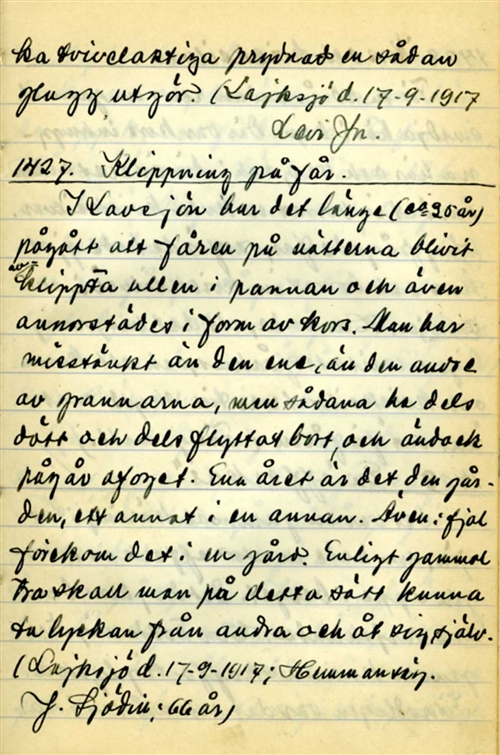 ka tvivelaktiga prydnad en sådan
glugg utgör. (Lajksjö d. 17-9-1917
Levi Jn.
1427. Klippning på får.
I Lavsjön har det länge (ca 25 år)
pågått att fåren på nätterna blivit
av=
klippta ullen i pannan och även
annorstädes i form av kors. Man har
misstänkt än den ene, än den andre
av grannarna, men sådana ha dels
dött och dels flyttat bort, och ändock
pågår ofoget. Ena året är det den går-
den, ett annat i en annan. Även i fjol
förekom det i en gård. Enligt gammal
tro skall man på detta sätt kunna
ta lyckan från andra och åt sig själv.
(Lajksjö d. 17-9-1917; Hemmansäg.
J. Sjödin; 66 år)